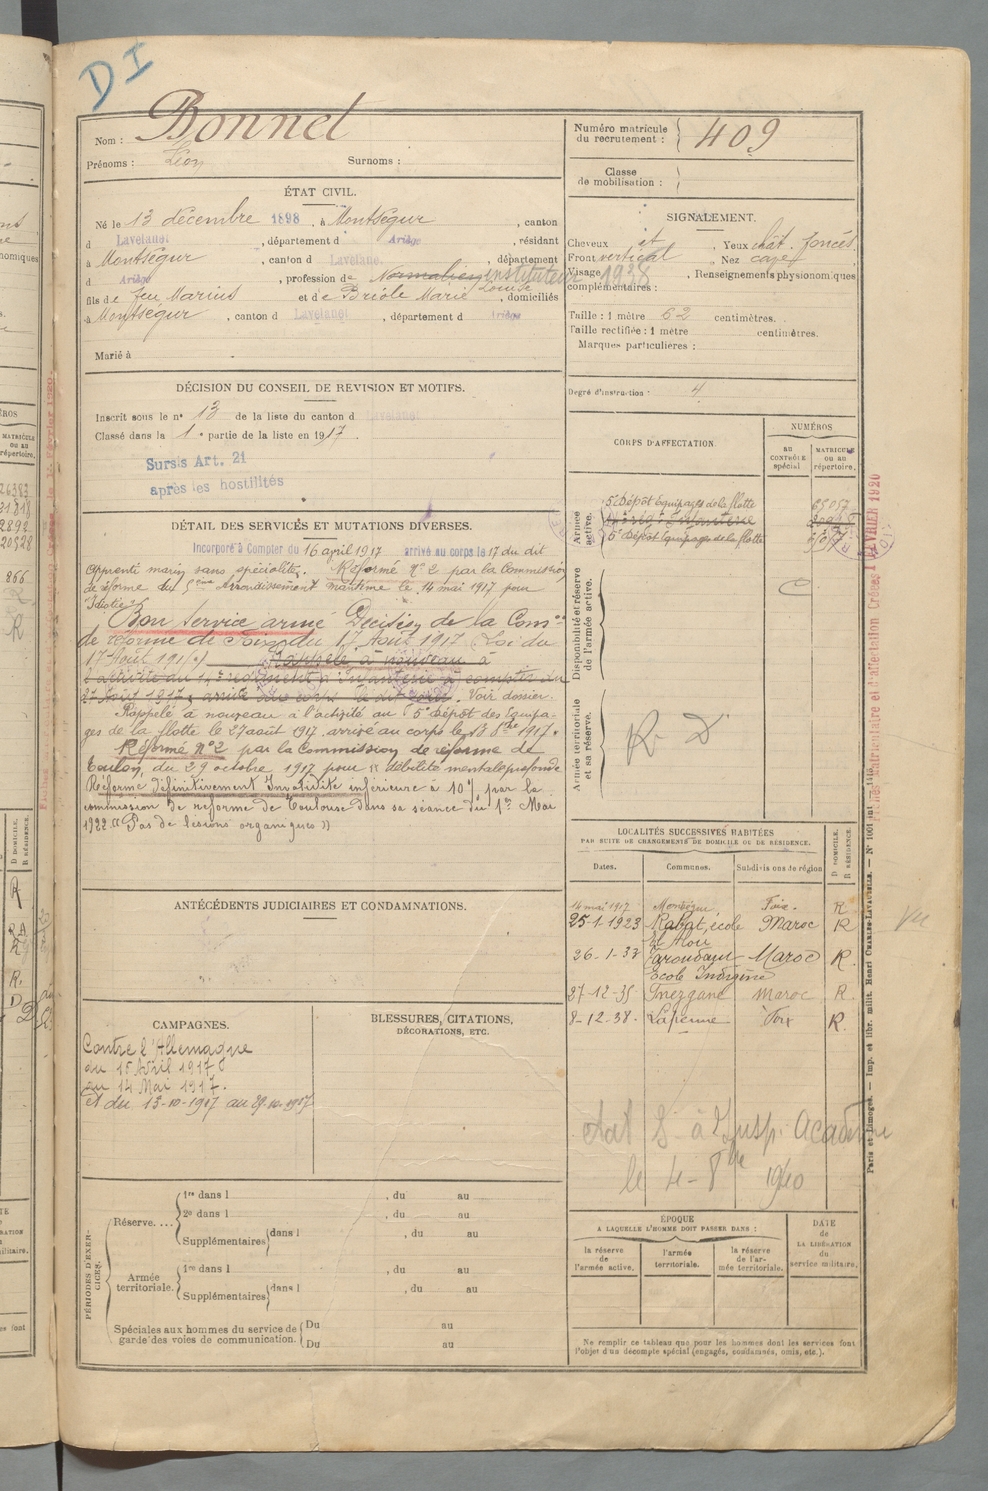 DI
Nom : Bonnet
Prénoms : Léon Surnoms :
Numéro matricule du recrutement : 409
Classe de mobilisation :
ÉTAT CIVIL.
Né le 13 décembre 1898, à Montségur, canton
d Lavelanet, département d Ariège, résidant
à Montségur, canton d Lavelanet, département
d Ariège, profession de Normalien instituteur
fils de feu Marius et de Briole Marie Louise, domiciliés
à Montségur, canton d Lavelanet, département d Ariège
Marié à
SIGNALEMENT.
Cheveux Yeux chât. foncés
Front vertical, Nez
Visage 1938, Renseignements physionomiques
complémentaires :
Taille : 1 mètre 62 centimètres.
Taille rectifiée : 1 mètre centimètres.
Marques particulières :
Degré d'instruction : 4
DÉCISION DU CONSEIL DE REVISION ET MOTIFS.
Inscrit sous le n° 13 de la liste du canton d Lavelanet
Classé dans la 1e partie de la liste en 1917.
Sursis Art. 21
après les hostilités
CORPS D'AFFECTATION.
NUMÉROS
au CONTRÔLE spécial
MATRICULE ou au répertoire.
Armée active.
5e Dépôt Equipages de la flotte 65057
5e dépôt Equipages de la flotte
Disponibilité et réserve de l'armée active.
Armée territoriale et sa réserve.
R D
DÉTAIL DES SERVICES ET MUTATIONS DIVERSES.
Incorporé à Compter du 16 avril 1917 arrivé au corps le 17 du dit
apprenti marin sans spécialité. Réformé n° 2 par la Commission
de réforme du 5ème Arrondissement maritime le 14 mai 1917 pour
"Idiotie"
Bon Service armé Décision de la Comon
de réforme de Foix du 17 Août 1917 (Loi du
17 Août 1917) Rappelé à nouveau à
l'activité au régiment d'Infanterie à compter du
27 Août 1917, arrivé au corps le dit jour. Voir dossier.
Rappelé à nouveau à l'activité au 5e dépôt des Equipa-
ges de la flotte le 27 août 1917, arrivé au corps le 13 8bre 1917.
Réformé N°2 par la Commission de réforme de
Toulon, du 29 octobre 1917 pour "débilité mentale profonde
Réformé définitivement Invalidité inférieure à 10% par la
commission de réforme de Toulouse dans sa séance du 1er Mai
1922. "Pas de lésions organiques"
LOCALITÉS SUCCESSIVES HABITÉES
PAR SUITE DE CHANGEMENTS DE DOMICILE OU DE RÉSIDENCE.
Dates. Communes. Subdivisions de région D DOMICILE. R RÉSIDENCE.
14 mai 1917 Montségur Foix. R
25-1-1923 Rabat, école Maroc R
El Alou
26-1-33 Taroudant Maroc R.
Ecole Indigène
27-12-35 Inezgane Maroc R.
8-12-38. Lapenne Foix R.
vu
ANTÉCÉDENTS JUDICIAIRES ET CONDAMNATIONS.
CAMPAGNES.
Contre l'Allemagne
du 15 Avril 1917
au 14 Mai 1917.
et du 13-10-1917 au 29-10-1917
BLESSURES, CITATIONS, DÉCORATIONS, ETC.
état S à l'Insp. Académie
le 4-8bre 1940
PÉRIODES D'EXERCICES.
Réserve.... 1re dans l , du au
2e dans l , du au
Supplémentaires dans l , du au
Armée territoriale. 1re dans l , du au
Supplémentaires dans l , du au
Spéciales aux hommes du service de garde des voies de communication. Du au
Du au
ÉPOQUE
A LAQUELLE L'HOMME DOIT PASSER DANS :
la réserve de l'armée active.
l'armée territoriale.
la réserve de l'armée territoriale.
DATE de LA LIBÉRATION du service militaire.
Ne remplir ce tableau que pour les hommes dont les services font
l'objet d'un décompte spécial (engagés, condamnés, omis, etc.).
Paris et Limoges. — Imp. et libr. milit. Henri CHARLES-LAVAUZELLE. — N° 1001